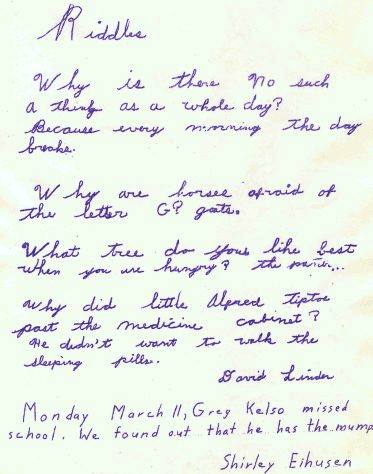 Riddles
Why is there no such
a thing as a whole day?
Because every morning the day
breaks.
Why are horses afraid of
the letter G? goats.
What tree do you like best
when you are hungry? the
Why did little Alfred tiptoe
past the medicine cabinet?
He didn't want to walk the
sleeping pills.
David Linder
Monday March 11, Greg Kelso missed
school. We found out that he has the mump
Shirley Eihusen